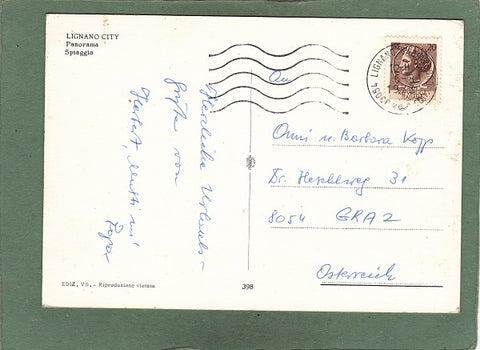 LIGNANO CITY
Panorama
Spiaggia
Herzliche Urlaubs-
grüße von
Herbert, Mutti u.
Papa
An
Omi u. Barbara Kopp
Dr. 31
8054 GRAZ
Österreich
EDIZ. VS. - Riproduzione vietata
398
20
LIGNANO